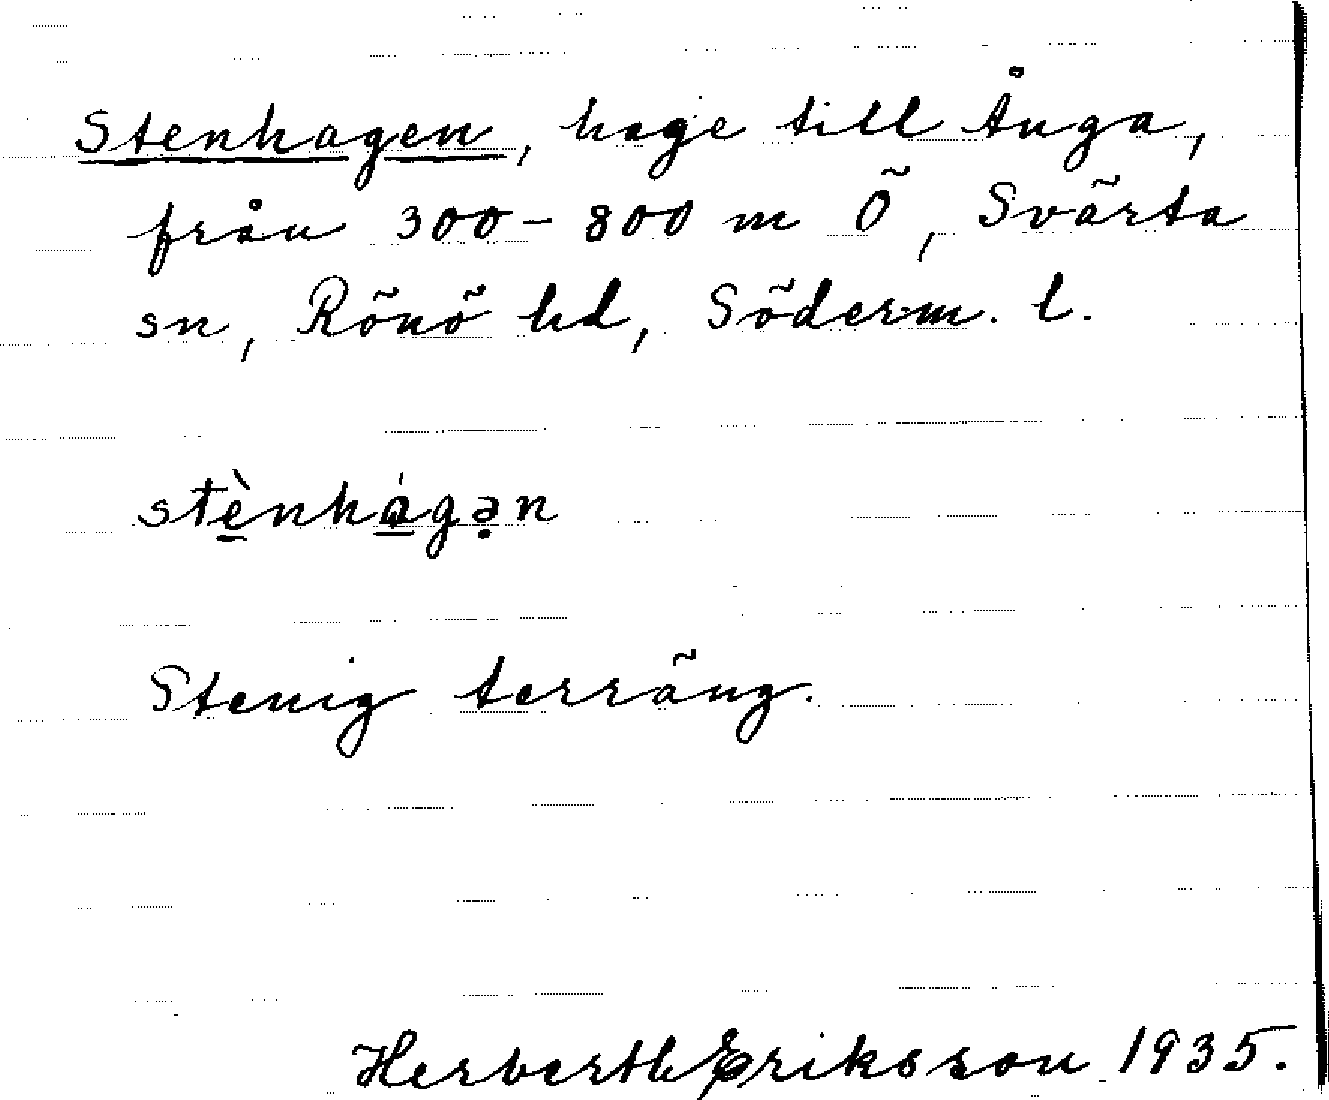 Stenhagen, hage till Ånga,
från 300-800 m Ö, Svärta
sn, Rönö hd, Söderm. l.
stènhágən
Stenig terräng.
Herberth Eriksson 1935.